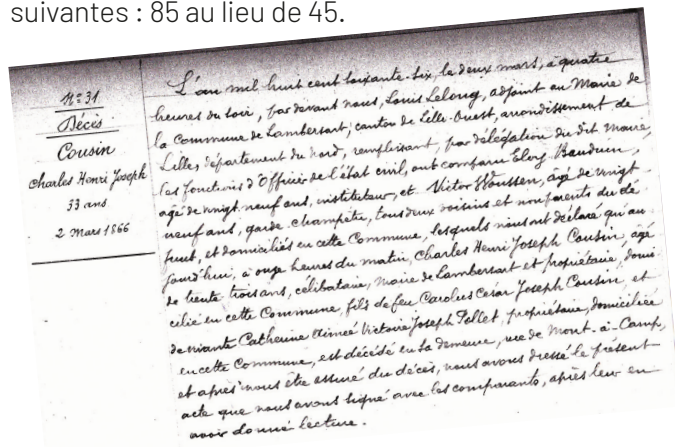 suivantes : 85 au lieu de 45.
N° 31
Décès
Cousin
Charles Henri Joseph
33 ans
2 Mars 1866
L'an mil huit cent soixante-six, le deux mars, à quatre
heures du soir, par devant nous, Louis Lelong, adjoint au Maire de
la Commune de Lambersart, canton de Lille-Ouest, arrondissement de
Lille, département du Nord, remplissant, par délégation du dit Maire,
les fonctions d'Officier de l'état civil, ont comparu Eloy Bauduin,
âgé de vingt neuf ans, instituteur, et Victor Woussen, âgé de vingt-
neuf ans, garde-champêtre, tous deux voisins et non parents du dé
funt, et domiciliés en cette Commune, lesquels nous ont déclaré qu'au
jourd'hui, à onze heures du matin, Charles Henri Joseph Cousin, âgé
de trente trois ans, célibataire, maire de Lambersart et propriétaire, domi
cilié en cette Commune, fils de feu Carolus César Joseph Cousin, et
de vivante Catherine Aimée Victoire Joseph Follet, propriétaire, domiciliée
en cette Commune, est décédé en sa demeure, rue de Mont-à-Camp,
et après nous être assuré du décès, nous avons dressé le présent
acte que nous avons signé avec les comparants, après leur en
avoir donné lecture.